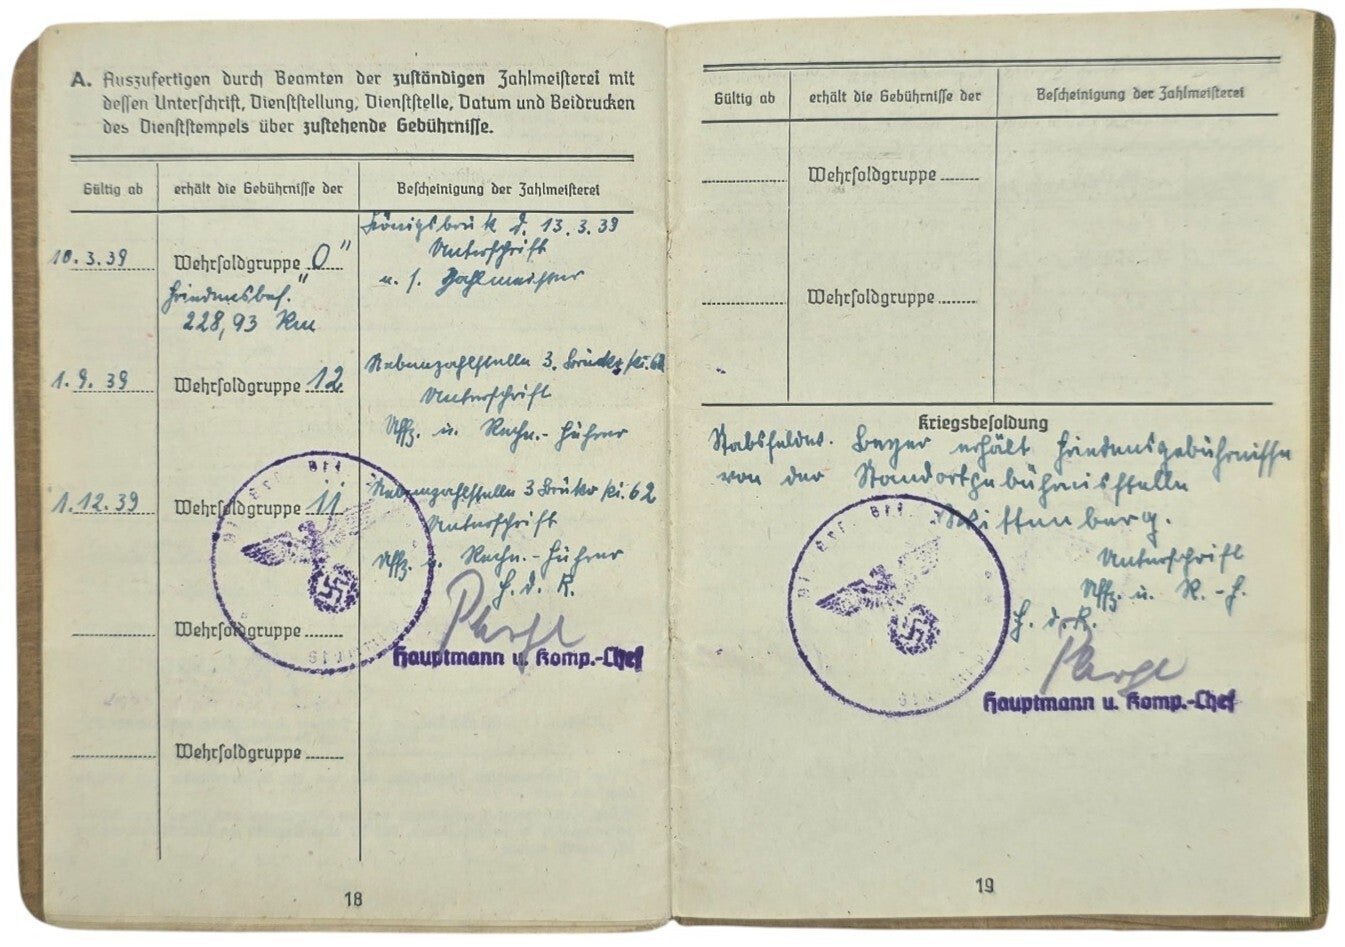 A. Auszufertigen durch Beamten der zuständigen Zahlmeisterei mit
dessen Unterschrift, Dienststellung, Dienststelle, Datum und Beidrucken
des Dienststempels über zustehende Gebührnisse.
Gültig ab
erhält die Gebührnisse der
Bescheinigung der Zahlmeisterei
10.3.39
Wehrsoldgruppe „0"
Friedensbes.
228,93 Rm
Königsbrük d. 13.3.39
Unterschrift
u. s. Zahlmeister
1.9.39
Wehrsoldgruppe 12
Nebenzahlstelle 3. Brüko Pi. 62
Unterschrift
Uffz. u. Rechn.-Führer
1.12.39
Wehrsoldgruppe 11
Nebenzahlstelle 3 Brüko Pi. 62
Unterschrift
Uffz. u. Rechn.-Führer
F. d. R.
Wehrsoldgruppe
Hauptmann u. Komp.-Chef
Wehrsoldgruppe
18
Gültig ab
erhält die Gebührnisse der
Bescheinigung der Zahlmeisterei
Wehrsoldgruppe
Wehrsoldgruppe
Kriegsbesoldung
Stabsfeldw. Beyer erhält Friedensgebührnisse
von der Standortgebührnisstelle
Wittenberg.
Unterschrift
Uffz. u. R.-F.
F. d. R.
Hauptmann u. Komp.-Chef
19